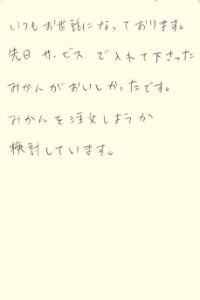 いつもお世話になっております。
先日 サービス で入れて下さった
みかんがおいしかったです。
みかんを注文しようか
検討しています。